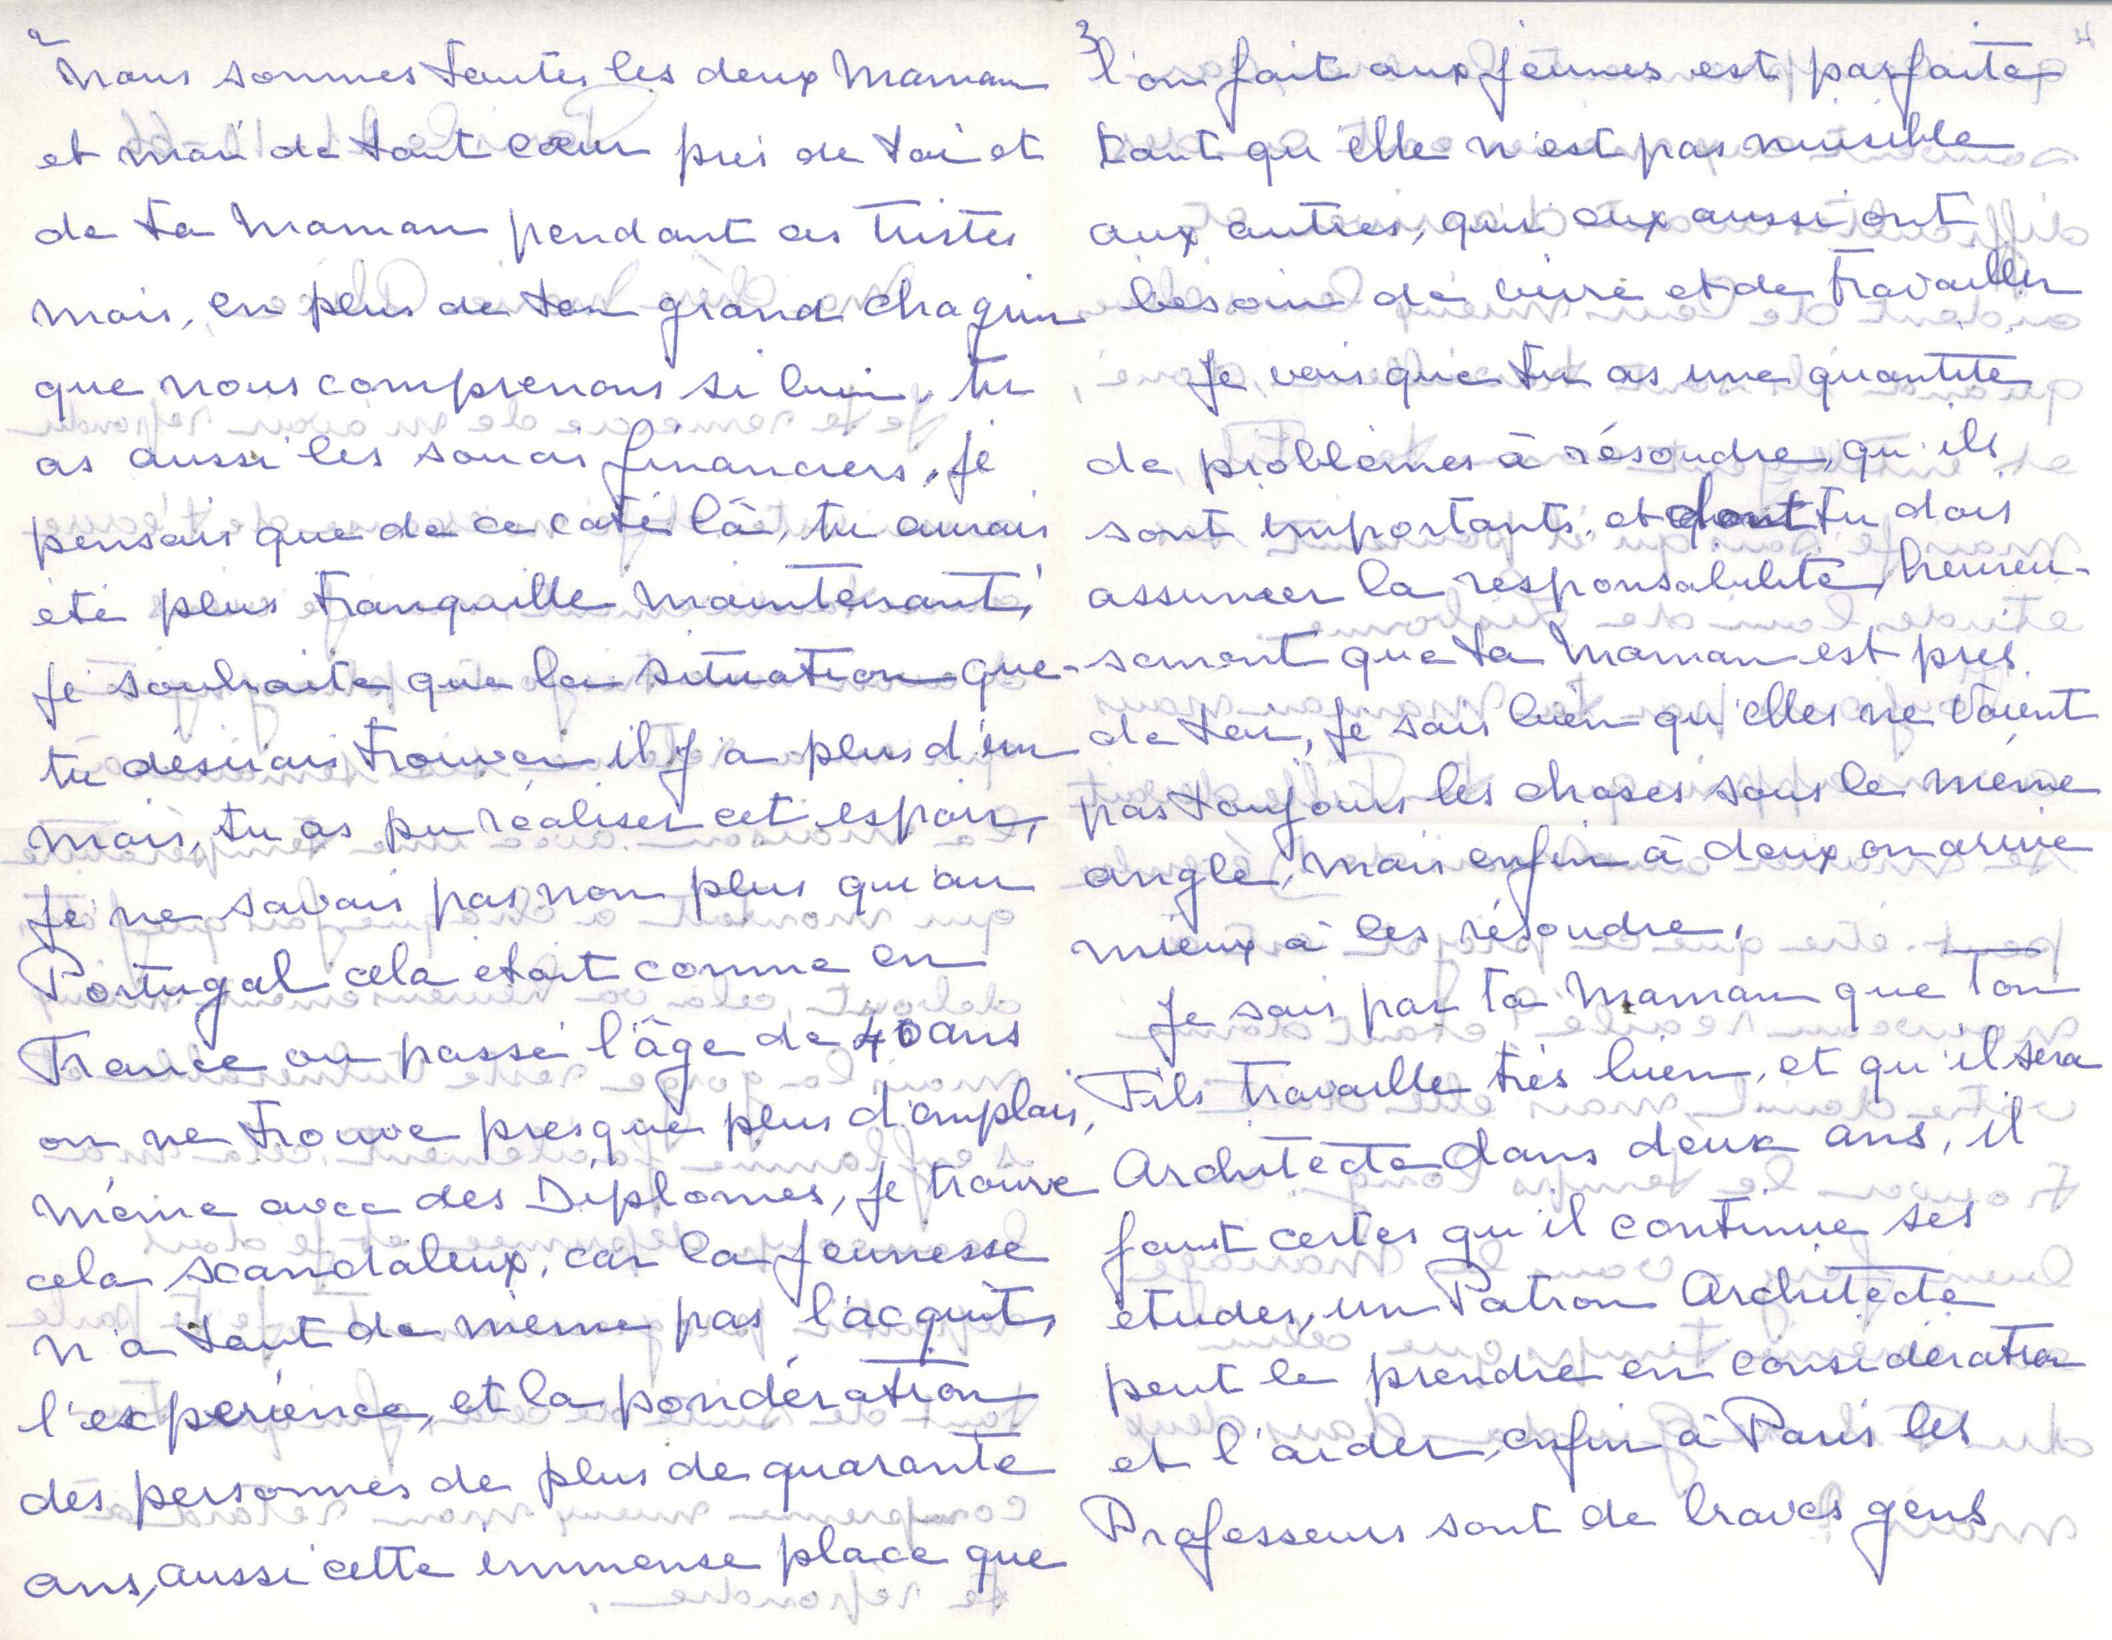 2
Nous sommes toutes les deux Maman
et moi de tout cœur près de toi et
de ta Maman pendant ces tristes
mois, en plus de ton grand chagrin
que nous comprenons si bien, tu
as aussi les soucis financiers, je
pensais que de ce coté là, tu aurais
été plus tranquille maintenant,
je souhaite que la situation que
tu désirais trouver il y a plus d'un
mois, tu as pu réaliser cet espoir,
je ne savais pas non plus qu'au
Portugal cela etait comme en
France ou passé l'âge de 40 ans
on ne trouve presque plus d'emplois,
même avec des Diplomes, je trouve
cela scandaleux, car la jeunesse
n'a tout de même pas l'acquit,
l'experience, et la pondération
des personnes de plus de quarante
ans, aussi cette immense place que
3
l'on fait aux jeunes est parfaite
tant qu'elle n'est pas nuisible
aux autres, qui eux aussi ont
besoin de vivre et de travailler
Je vois que tu as une quantité
de problèmes à résoudre, qu'ils
sont importants, et dont tu dois
assumer la responsabilité, heureu-
sement que ta Maman est près
de toi, je sais bien qu'elles ne voient
pas toujours les choses sous le même
angle, mais enfin à deux on arrive
mieux à les résoudre.
Je sais par ta Maman que Ton
Fils travaille très bien, et qu'il sera
Architecte dans deux ans, il
faut certes qu'il continue ses
études, un Patron Architecte
peut le prendre en considération
et l'aider, enfin à Paris les
Professeurs sont de braves gens